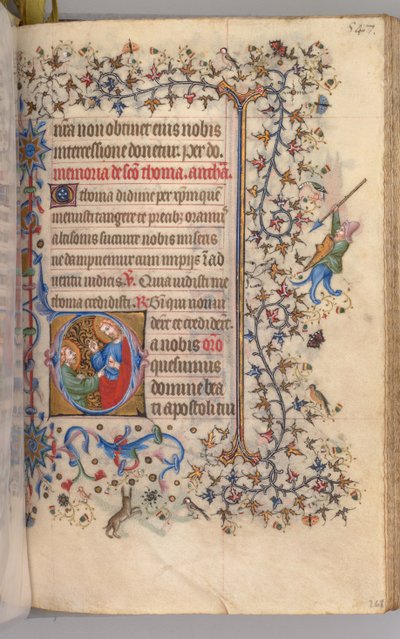 547.
nr̃a non obtinet eius nobis
intercessione donetur. per do.
memoria de sc̃o thoma. anth̃a.
O thoma didime per xp̃m quem
meruisti tangere te precib; oramus
altisonis succurre nobis miseris
ne dampnemur cum impijs ĩ ad
uentu iudicis. V̸. Quia uidisti me
thoma credidisti. R̸. Qui non ui
derũt et crediderũt.
a nobis oro
quesumus
domine bea
ti apostoli tui
268